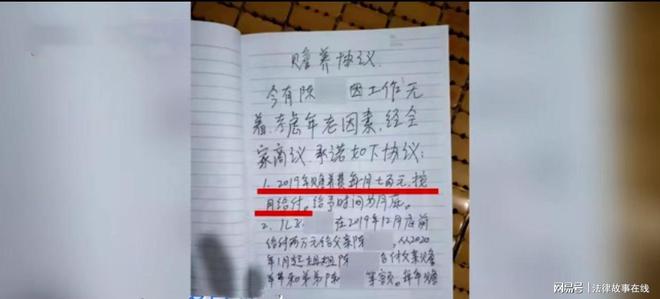 赡养协议
今有陈 因工作无
着,考虑年老因素,经全
家商议,承诺如下协议:
1.2019年赡养费每月七百元,按
月给付。给予时间为月底。
2.儿子 在2019年12月底前
给付两万元给父亲陈 ,从2020
年1月起 陈
和弟弟陈
网易号 | 法律故事在线